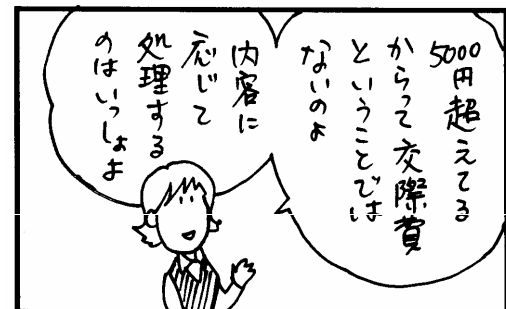 5000円超えてる
からって交際費
ということでは
ないのよ
内容に
応じて
処理する
のはいっしょよ